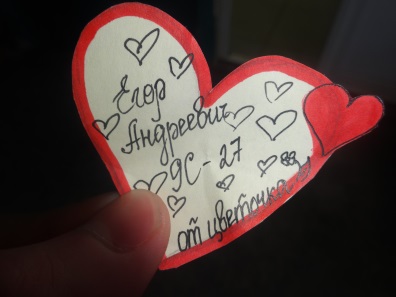 Егор
Андреевич
9С-27
от цветочка